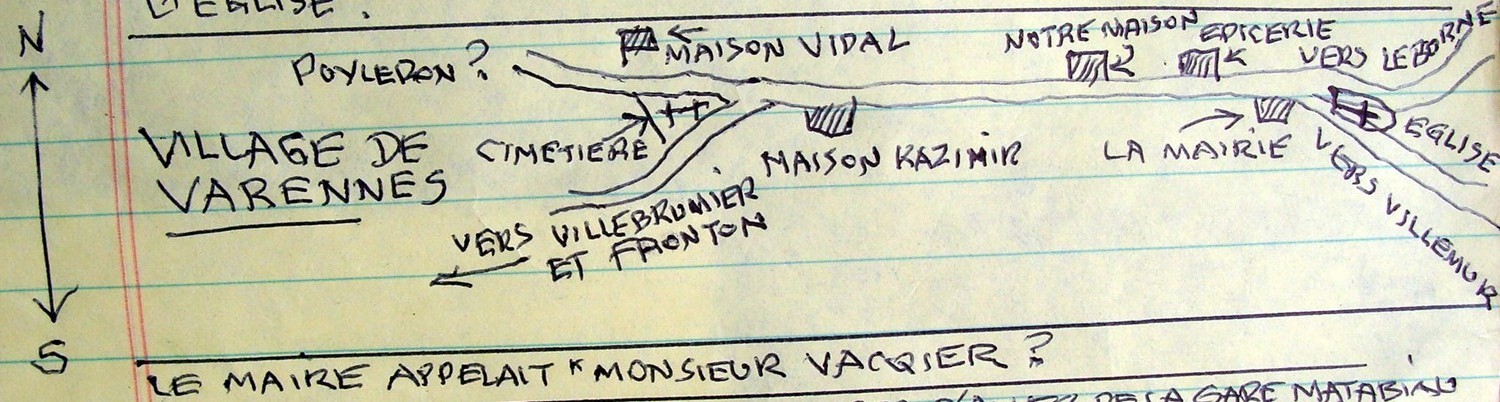 L'EGLISE.
N
MAISON VIDAL
NOTRE MAISON
EPICERIE
POYLERON?
VERS LE BORNE
VILLAGE DE
VARENNES
CIMETIERE
MAISON KAZIMIR
LA MAIRIE
EGLISE
VERS VILLEMUR
VERS VILLEBRUMIER
ET FRONTON
S
LE MAIRE APPELAIT "MONSIEUR VACQIER?
DE LA GARE MATABIAU